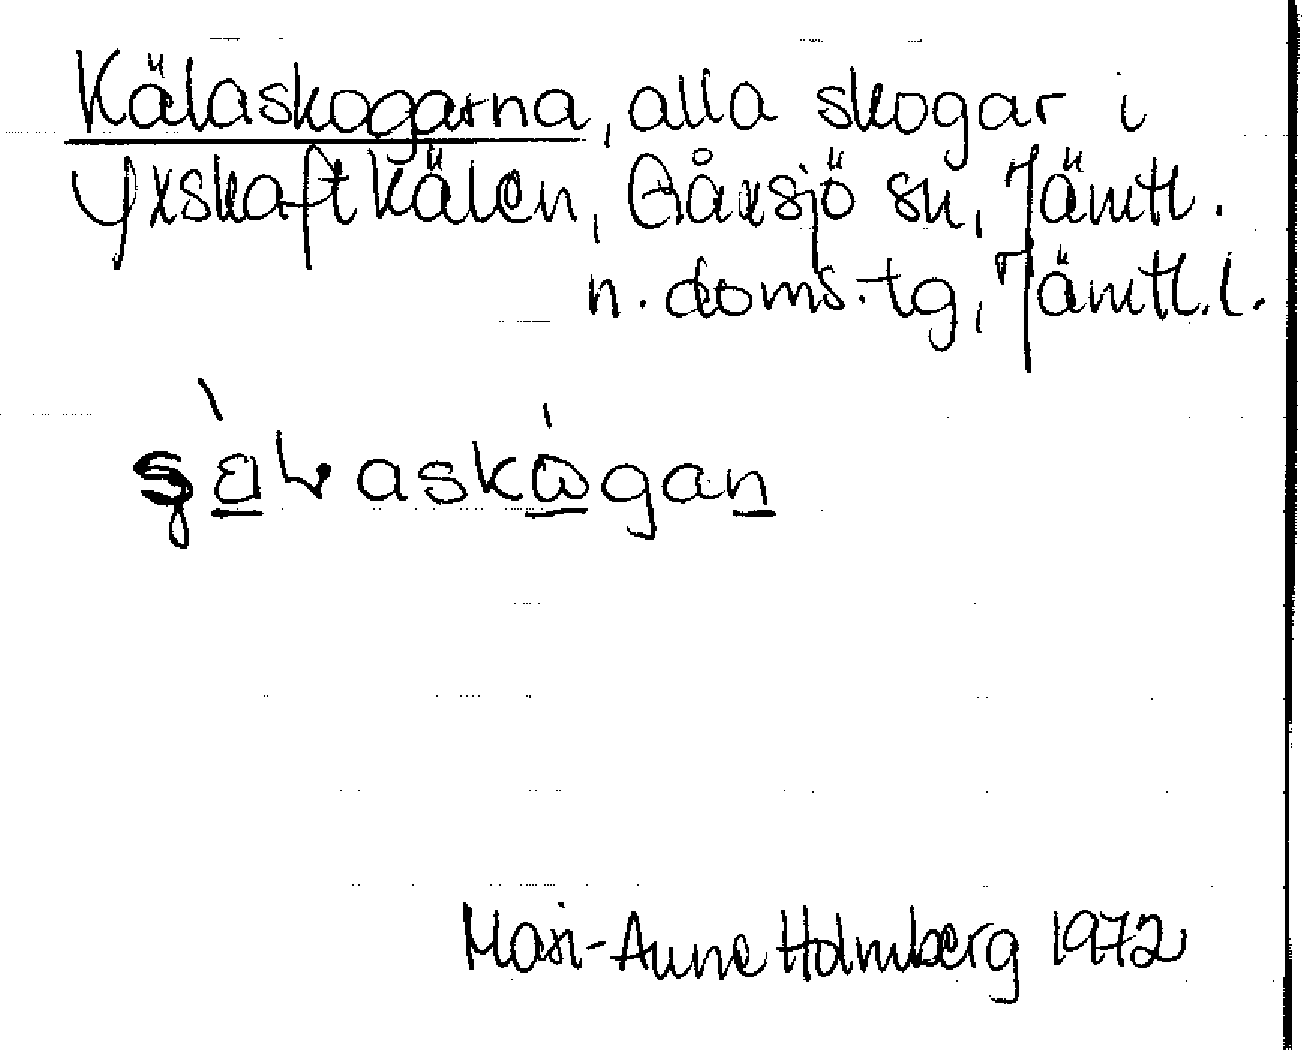 Kälaskogarna, alla skogar i
Yxskaftkälen, Gåxsjö sn, Jämtl.
n. doms.-tg, Jämtl. l.
Mari-Anne Holmberg 1972